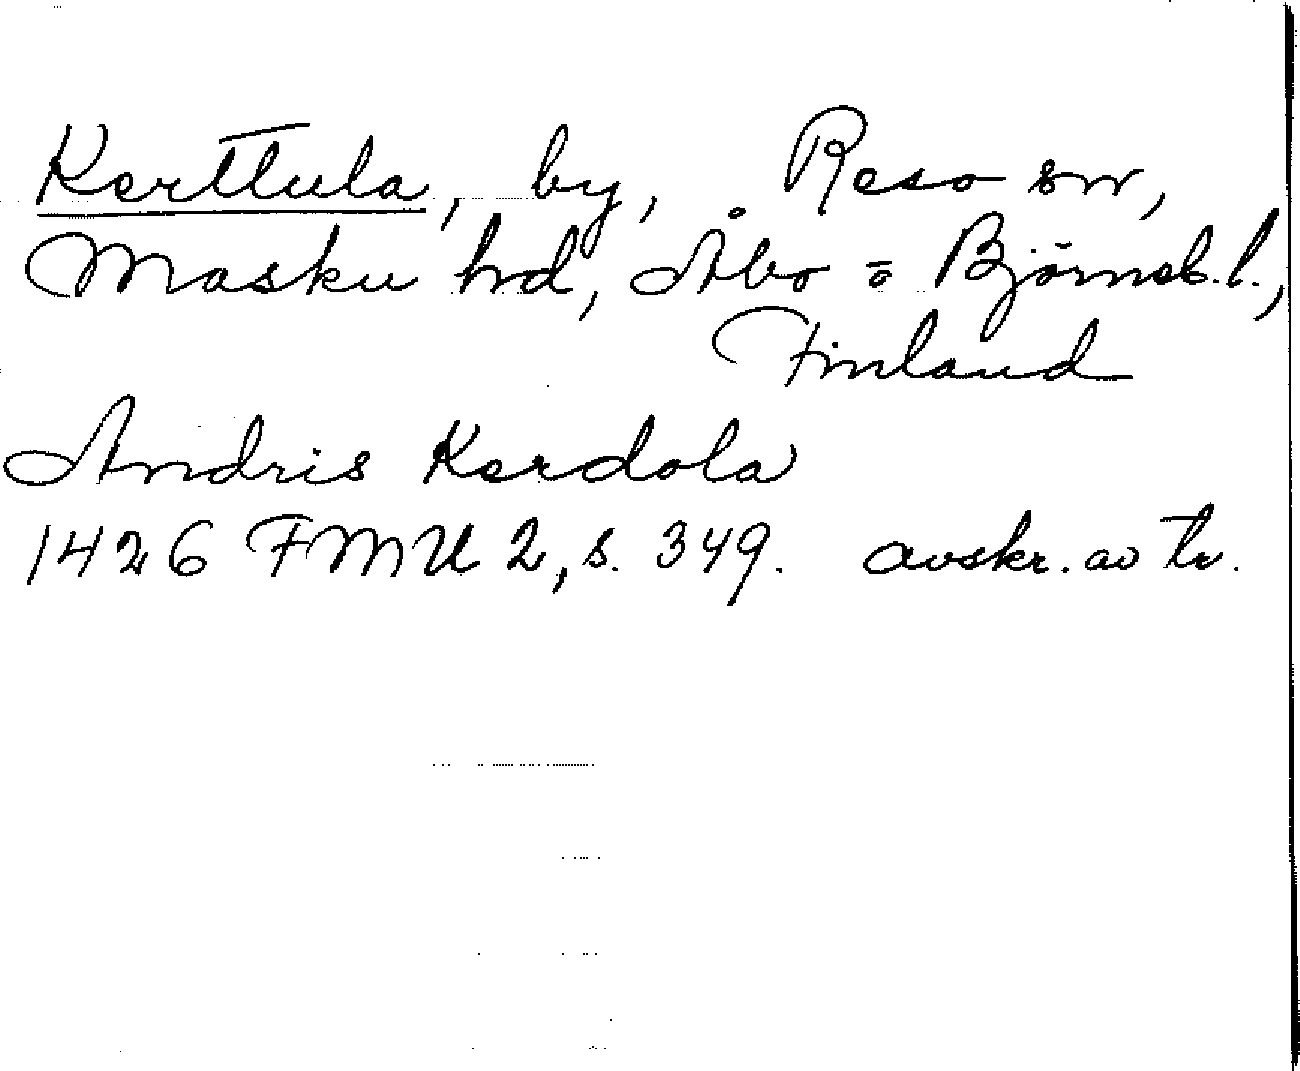 Kerttula, by, Reso sn,
Masku hd, Åbo = Björneb.l.,
Finland
Andris Kerdola
1426 FMU 2, s. 349. avskr. av tr.